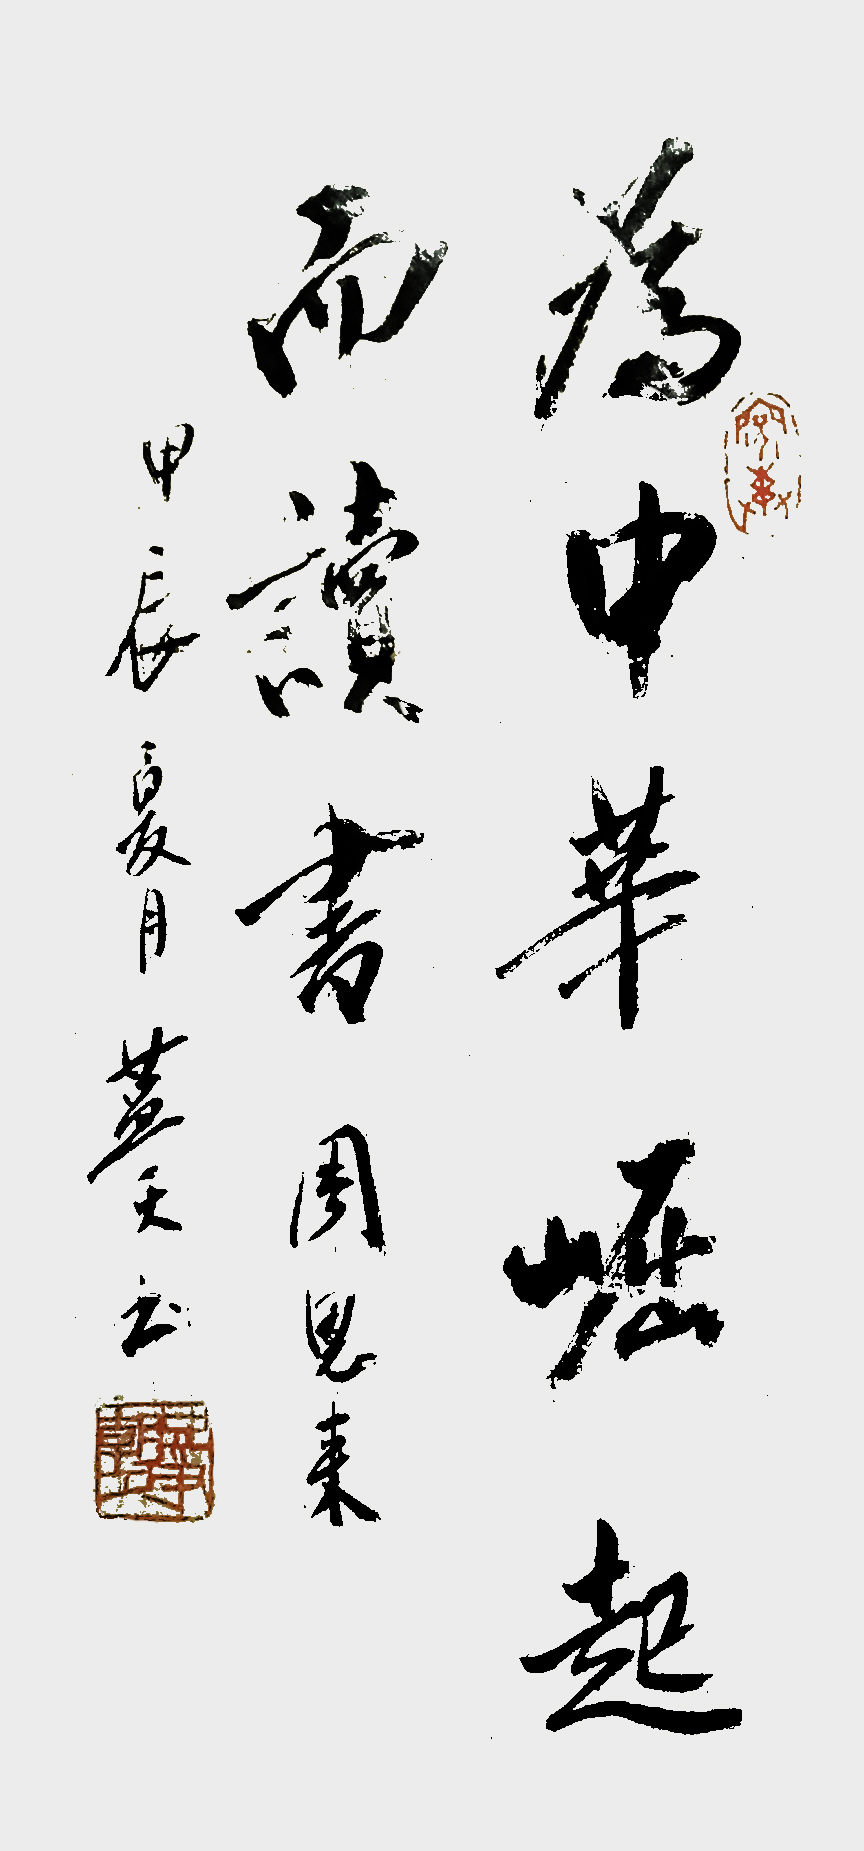 為中華崛起
而讀書 周恩来
甲辰夏月 薑天书